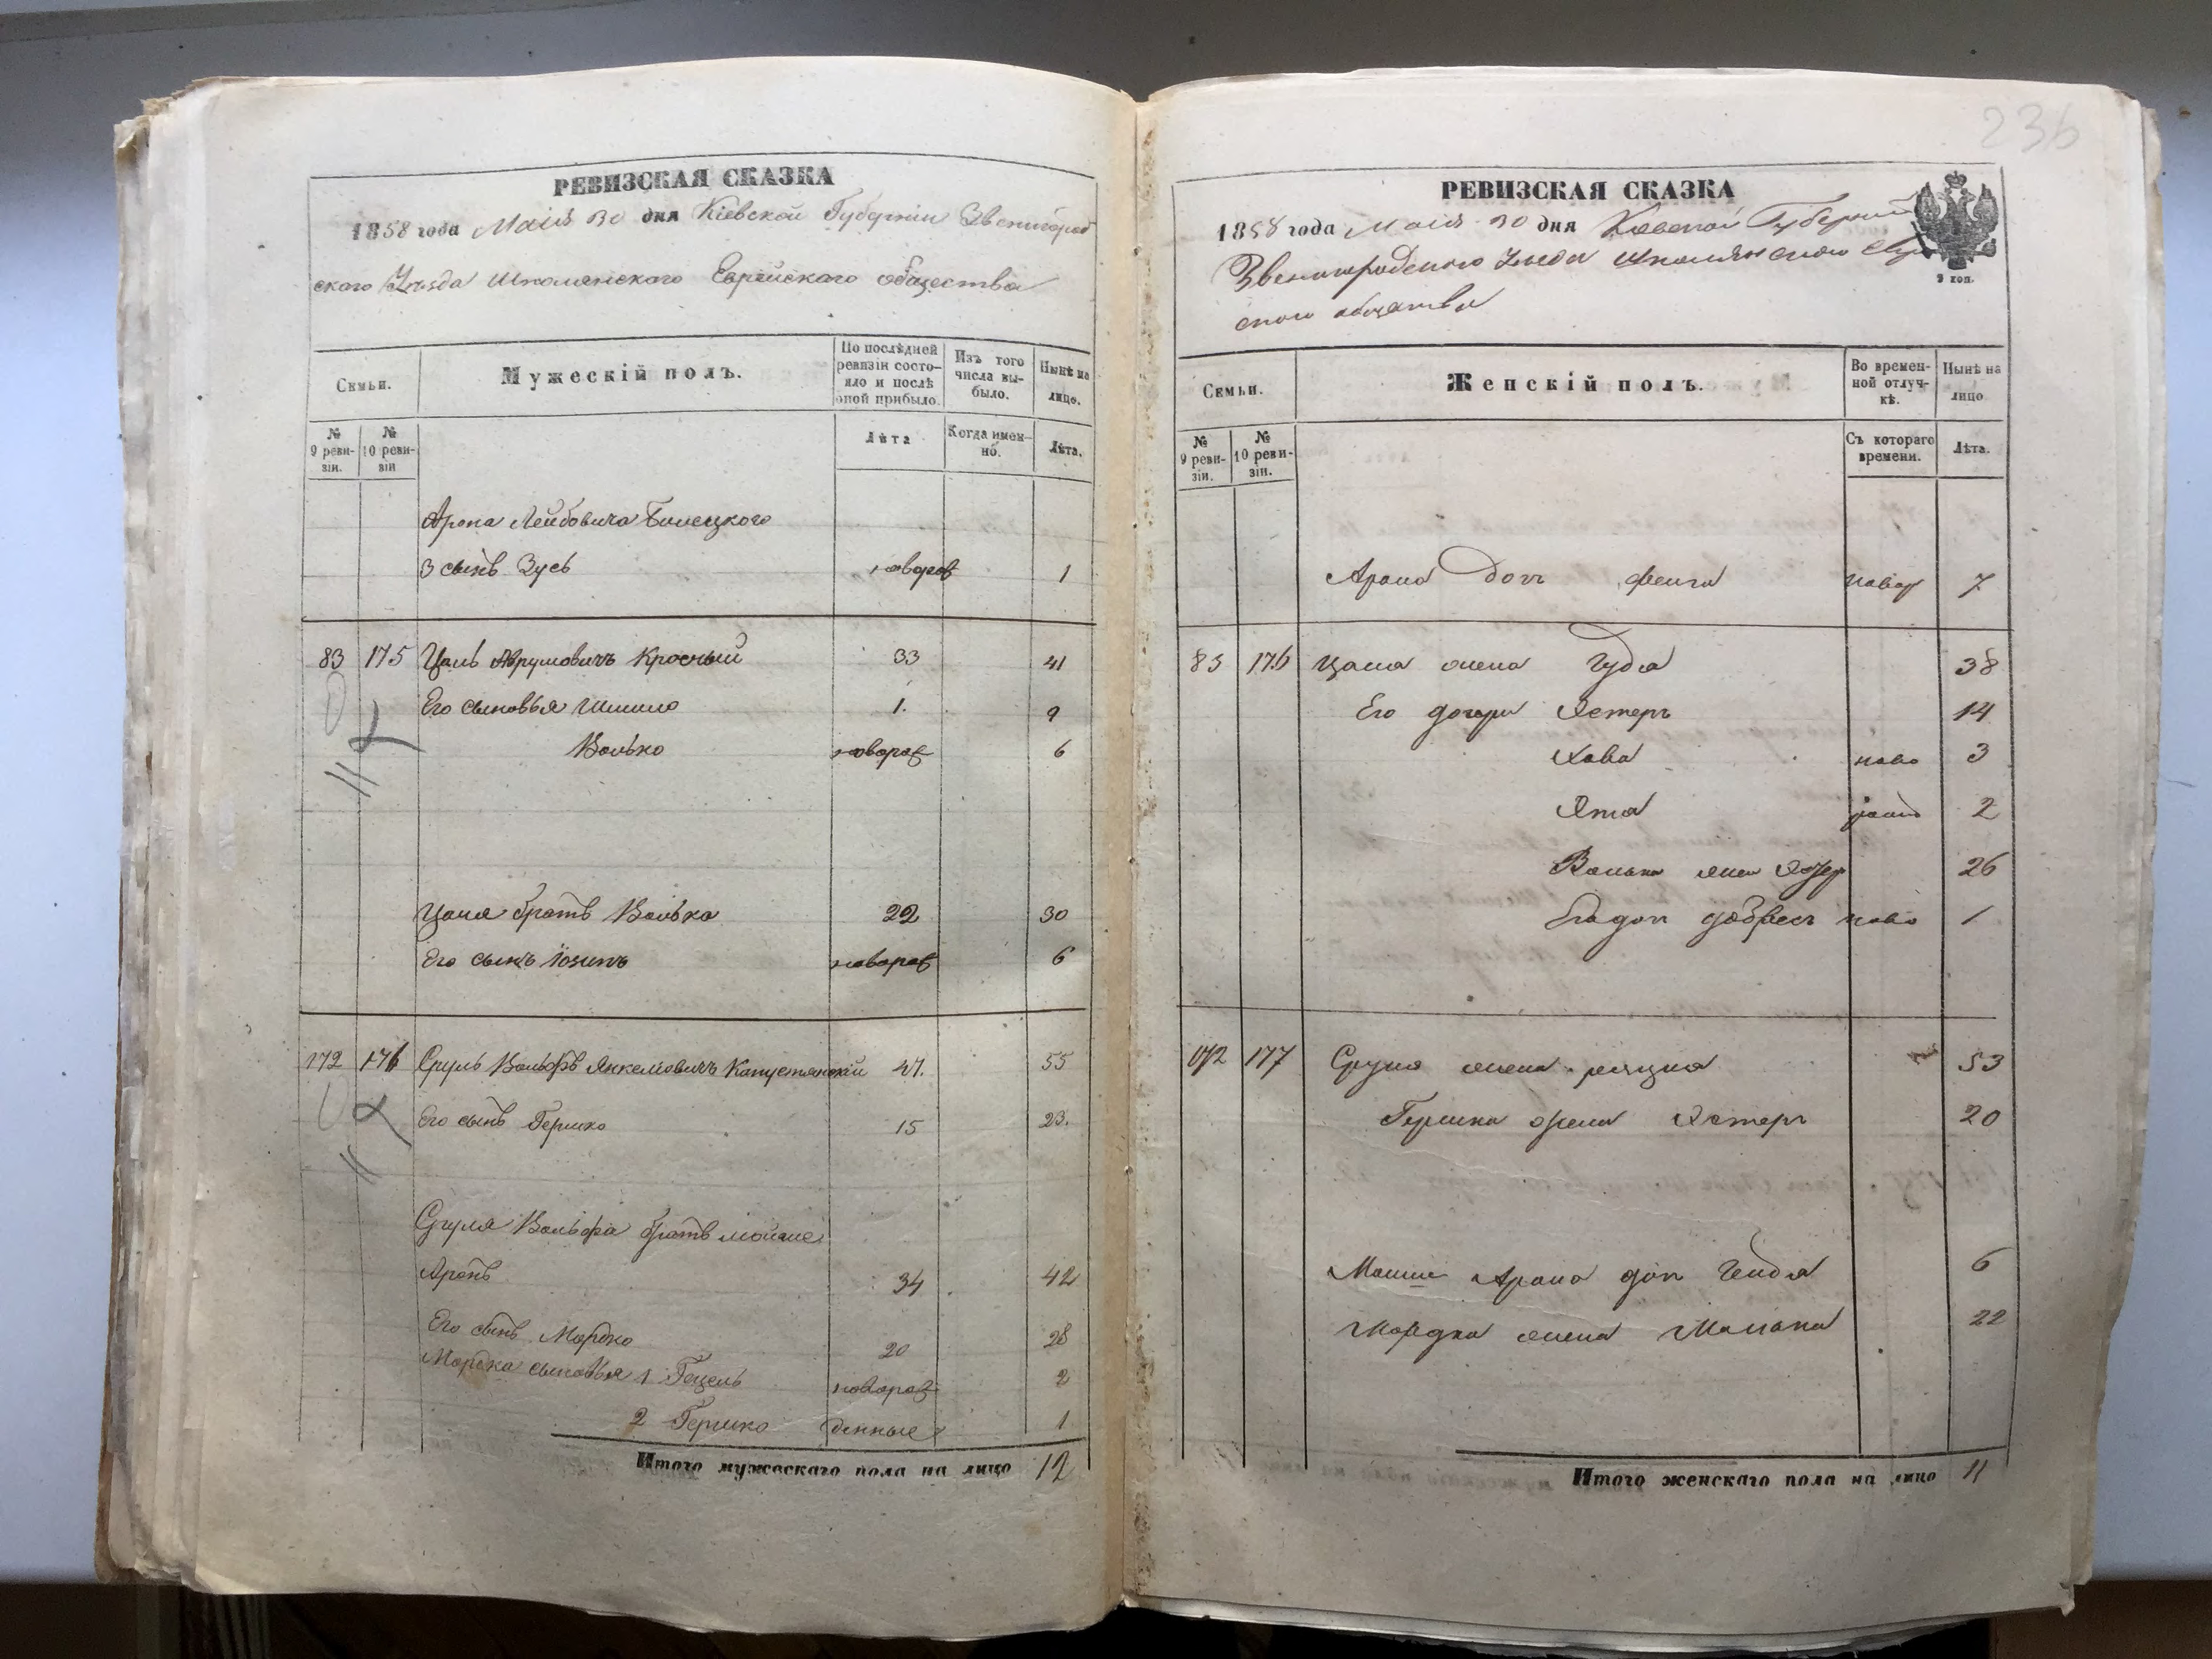 РЕВИЗСКАЯ СКАЗКА
1858 года Маія 30 дня Кіевской Губерніи Звенигород
ского Уѣзда Шполянского Еврейского общества
Семьи.
Мужескій полъ.
По послѣдней ревизіи состояло и послѣ оной прибыло.
Изъ того числа выбыло.
Нынѣ на лицо.
№ 9 ревизіи.
№ 10 ревизіи
Лѣта
Когда именно.
Лѣта.
Арона Лейбовича Билецкого
3 сынъ Зусь новорож 1
83 175 Цаль Аврумовичъ Красный 33 41
Его сыновья Шмило 1. 9
Волько новорож 6
Цаля братъ Волько 22 30
Его сынъ Іосипъ новорож 6
172 176 Сруль Вольфъ Янкелювичъ Капустянскій 47. 55
Его сынъ Гершко 15 23.
Сруля Вольфа братъ Мойше
Аронъ 34 42
Его сынъ Мордко 20 28
Мордка сыновья 1 Гецель новорож 2
2 Гершко денные 1
Итого мужескаго пола на лицо 12
236
РЕВИЗСКАЯ СКАЗКА
1858 года Маія 30 дня Кіевской Губерніи
Звенигородского Уѣзда Шполянского Евр
ского общества
9 коп.
Семьи.
Женскій полъ.
Во временной отлучкѣ.
Нынѣ на лицо
№ 9 ревизіи.
№ 10 ревизіи.
Съ котораго времени.
Лѣта.
Арона доч Фейга новор 7
83 176 Цаля жена Гудя 38
Его дочери Эстеръ 14
Хава ново 3
Эта рожд 2
Волька жена 26
Его доч Добрес ново 1
172 177 Сруля жена 53
Гершка жена Эстеръ 20
Мошие Арона доч Гендя 6
Мордка жена Малька 22
Итого женскаго пола на лицо 11